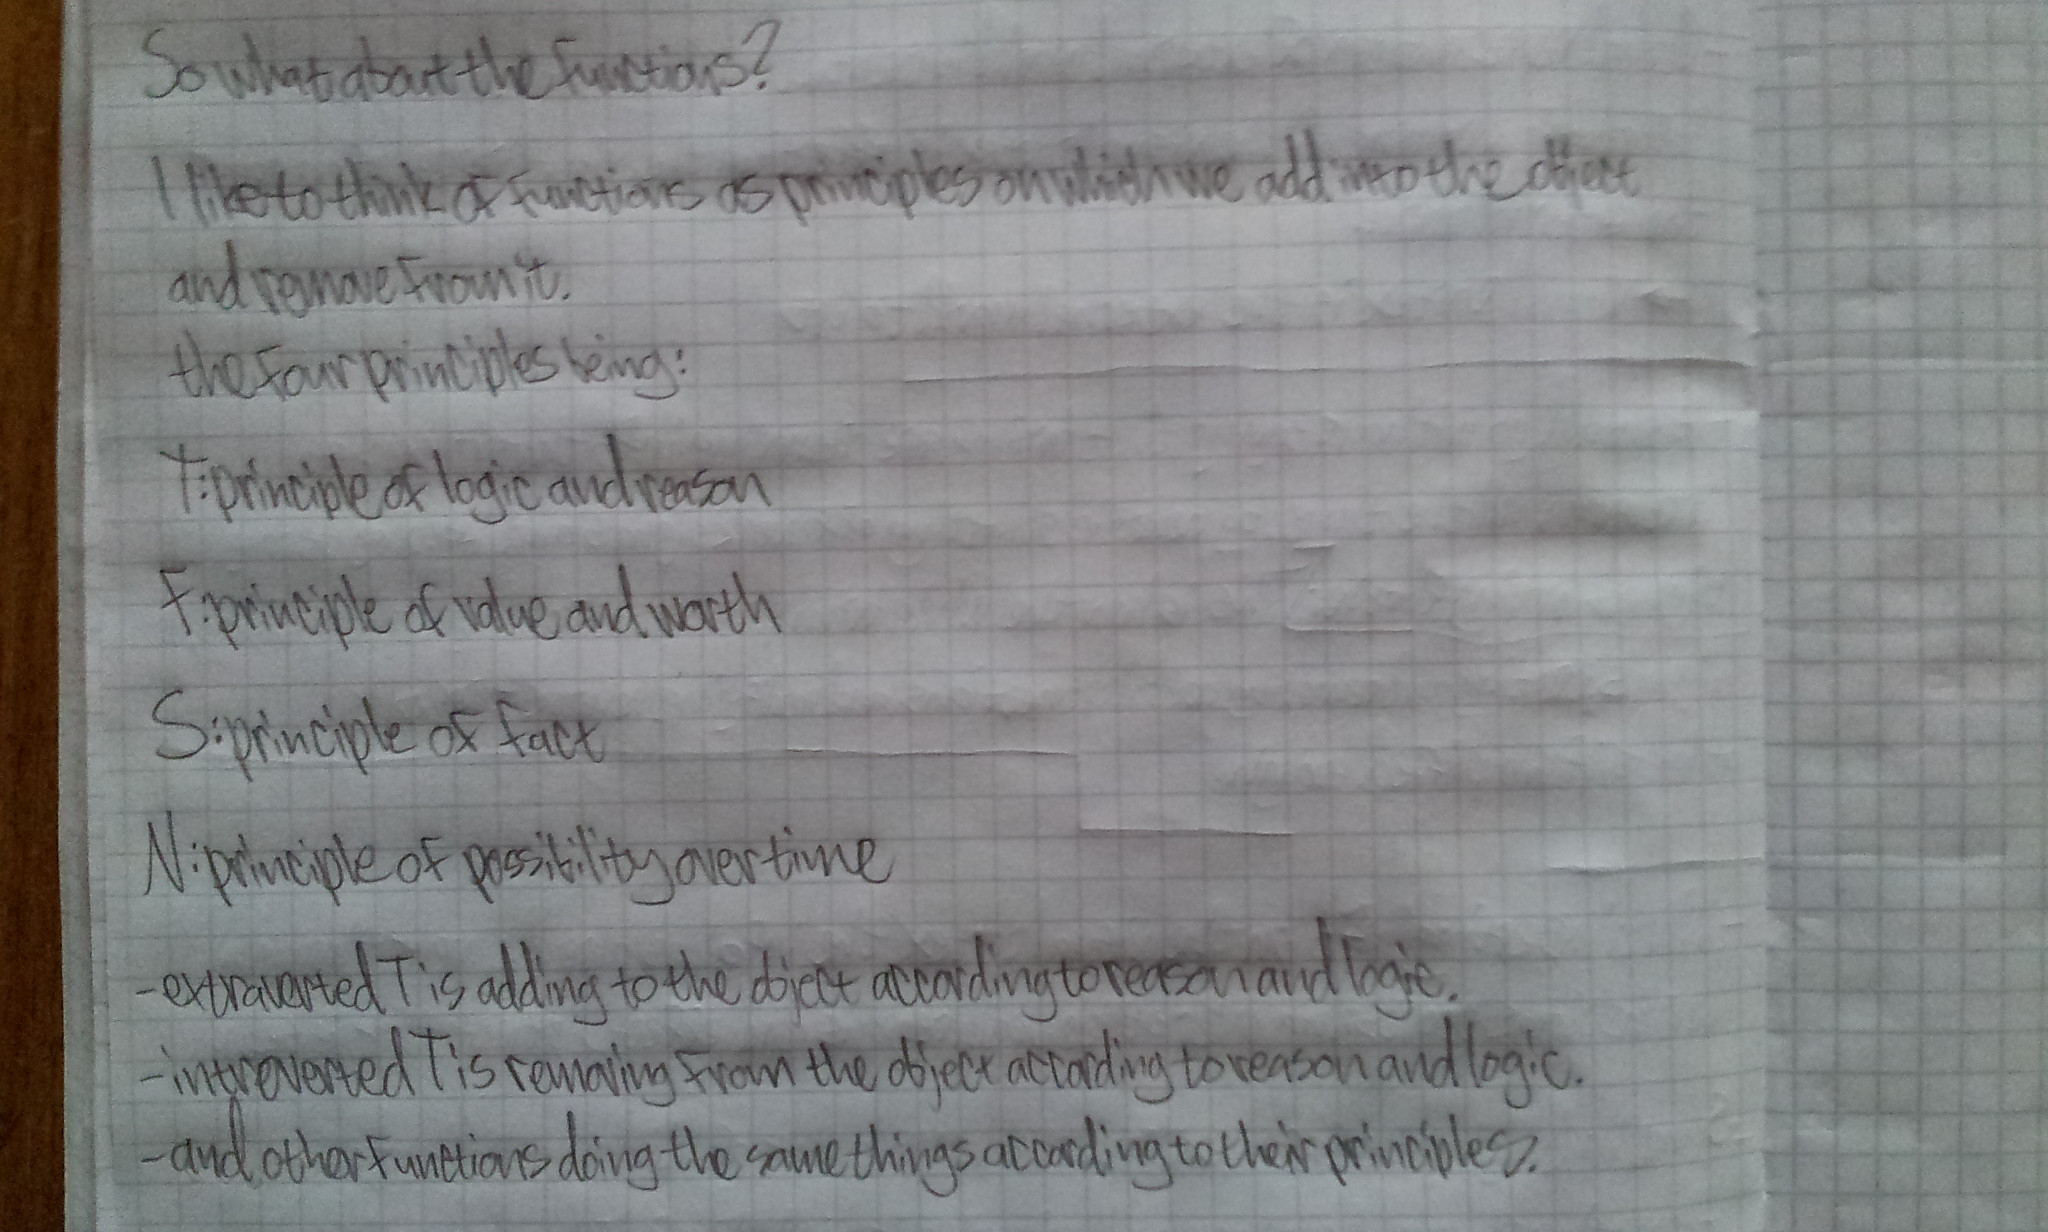 So what about the functions?
I like to think of functions as principles on which we add into the object
and remove from it.
the four principles being:
T: principle of logic and reason
F: principle of value and worth
S: principle of fact
N: principle of possibility over time
- extraverted T is adding to the object according to reason and logic.
- introverted T is removing from the object according to reason and logic.
- and other functions doing the same things according to their principles.